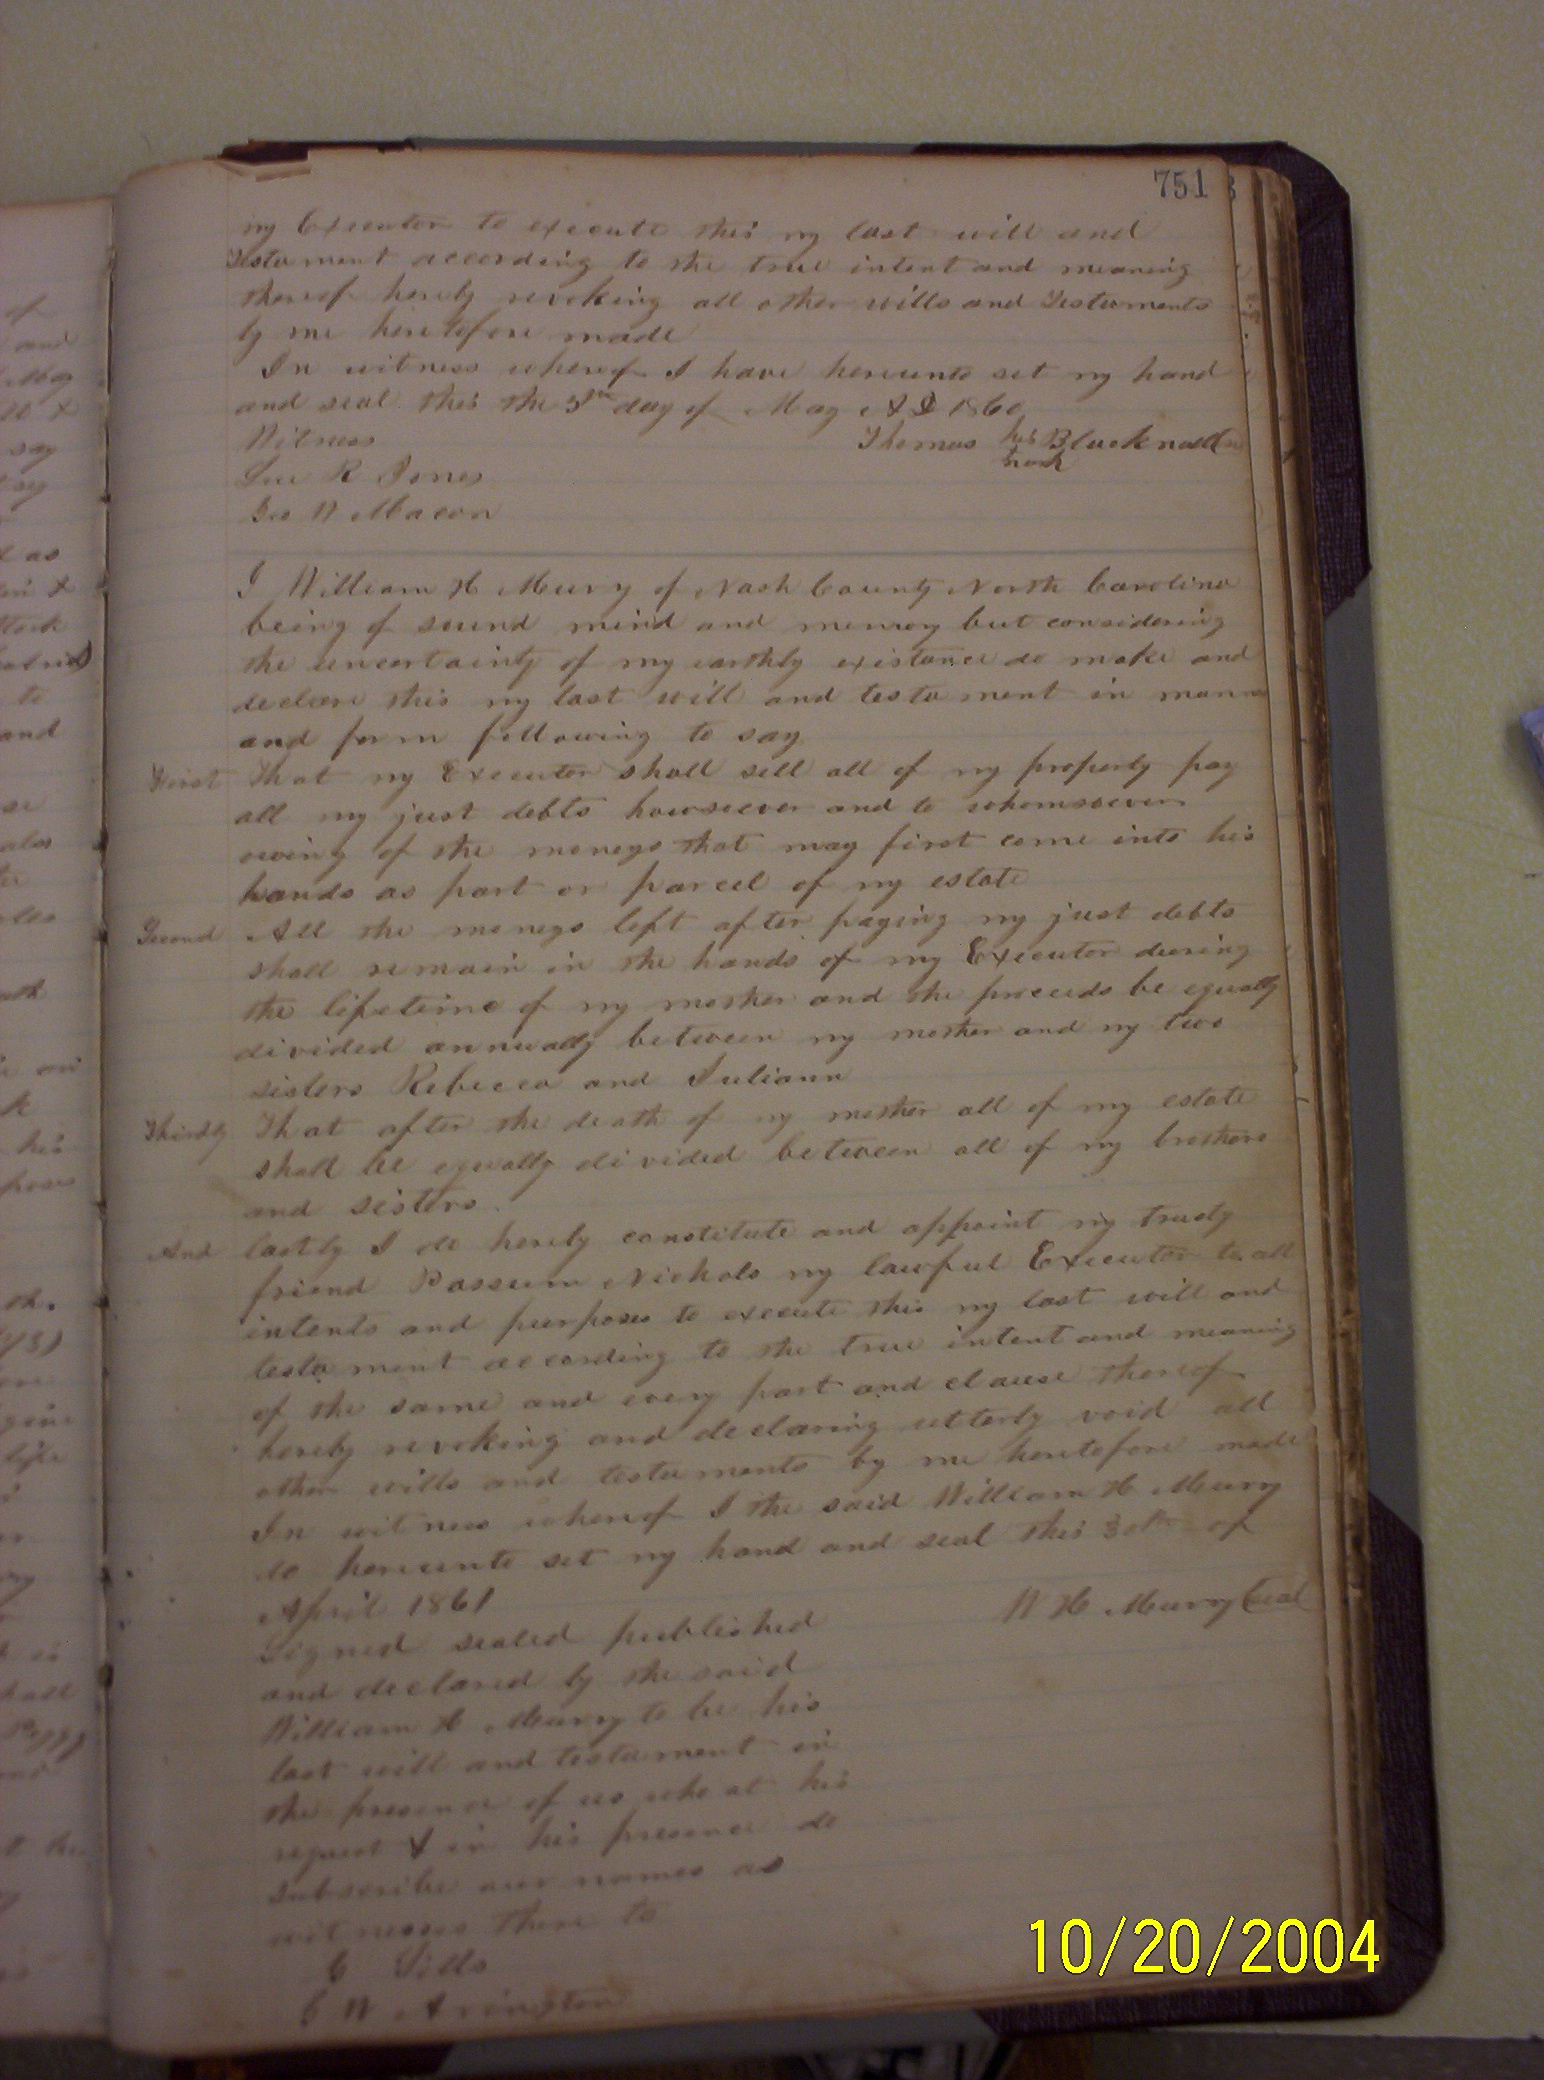 751
my Executor to execute this my last will and
Testament according to the true intent and meaning
thereof hereby revoking all other wills and Testaments
by me heretofore made
In witness whereof I have hereunto set my hand
and seal this the day of May AD 1860
Witness
Thomas his Blacknall
mark
R Jones
Geo W Macon
I William H Murry of Nash County North Carolina
being of sound mind and memory but considering
the uncertainty of my earthly existance do make and
declare this my last will and testament in manner
and form following to say
First That my Executor shall sell all of my property pay
all my just debts howsoever and to whomsoever
owing of the moneys that may first come into his
hands as part or parcel of my estate
Second All the moneys left after paying my just debts
shall remain in the hands of my Executor during
the lifetime of my mother and the proceeds be equally
divided annually between my mother and my two
sisters Rebecca and Juliann
Thirdly That after the death of my mother all of my estate
shall be equally divided between all of my brothers
and sisters.
And lastly I do hereby constitute and appoint my trusty
friend Nichols my lawful Executor to all
intents and purposes to execute this my last will and
testament according to the true intent and meaning
of the same and every part and clause thereof
hereby revoking and declaring utterly void all
other wills and testaments by me heretofore made
In witness whereof I the said William H Murry
do hereunto set my hand and seal this 30th of
April 1861
W H Murry (seal
Signed sealed published
and declared by the said
William H Murry to be his
last will and testament in
the presence of us who at his
request & in his presence do
subscribe our names as
witnesses there to
Sills
W Arington
10/20/2004